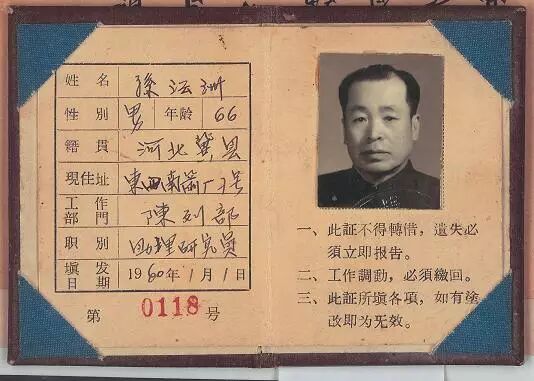 姓名 孫法洲
性別 男 年龄 66
籍貫 河北冀县
現住址 東四南箭厂7号
工作部門 陳列部
职别 助理研究員
填发日期 1960年1月1日
第 0118 号
一、此証不得轉借，遺失必
須立即报告。
二、工作調動，必須繳回。
三、此証所填各項，如有塗
改即为无效。